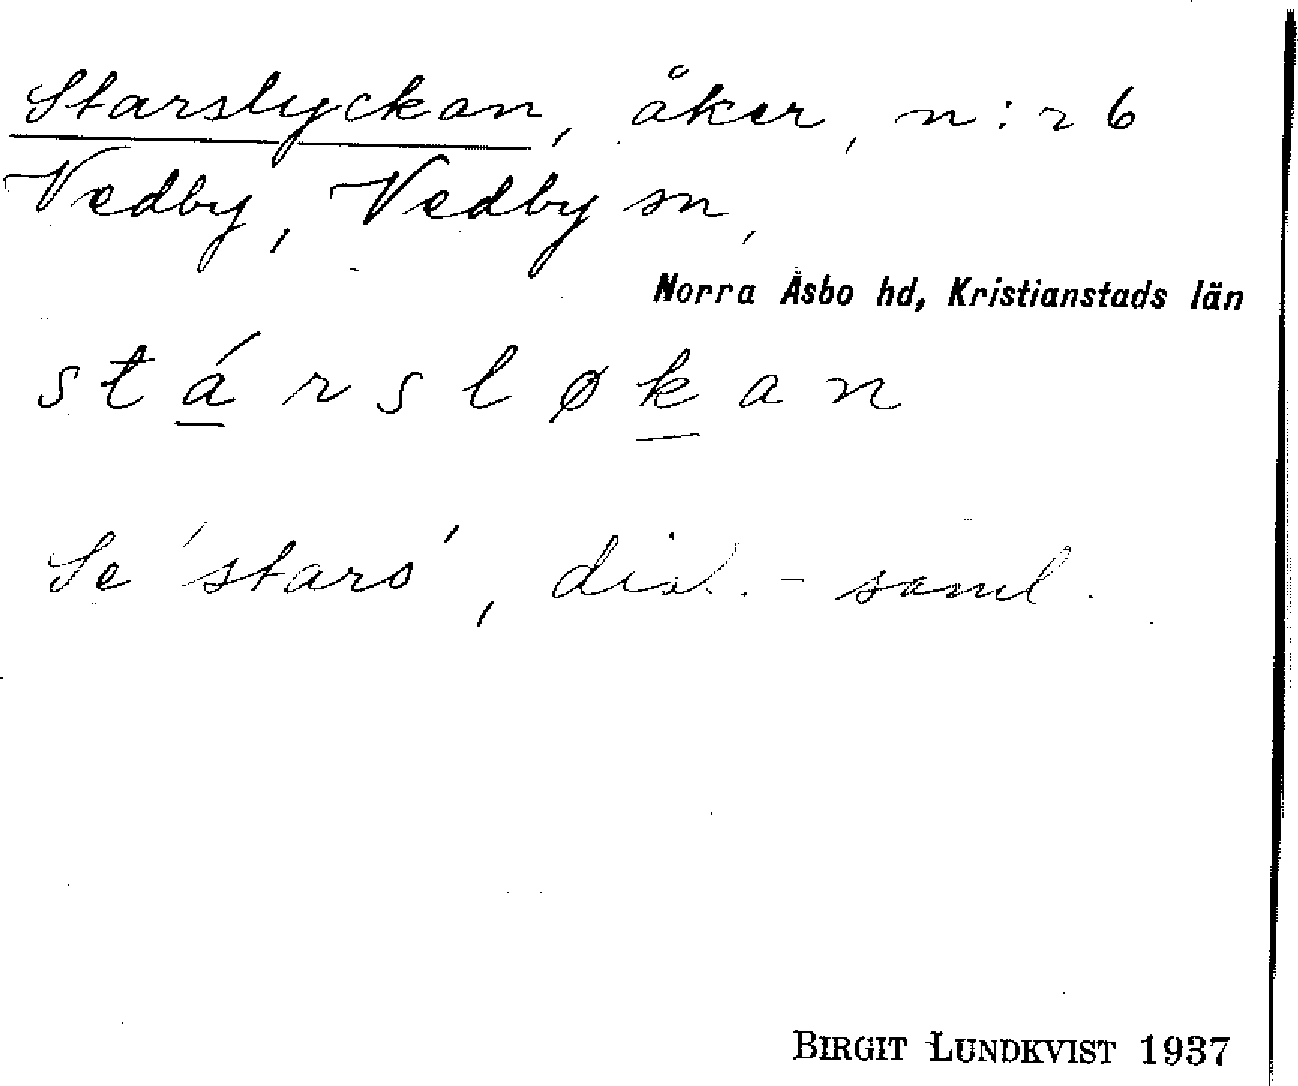 Starslyckan, åker, n:r 6
Vedby, Vedby sn,
Norra Åsbo hd, Kristianstads län
stársløkan
Se 'stars', dial.-saml.
BIRGIT LUNDKVIST 1937